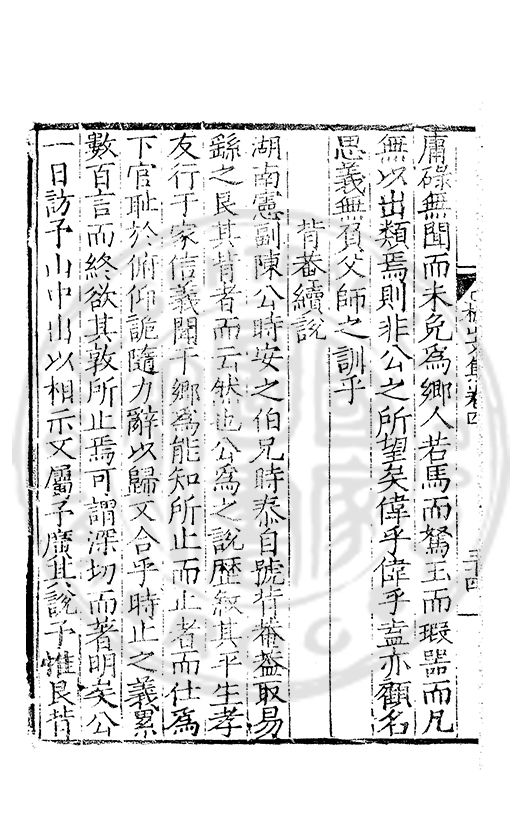 庸碌無聞而未免為鄉人若馬而駑玉而瑕器而凡
無以出類焉則非公之所望矣偉乎偉乎盍亦顧名
思義無負父師之訓乎
背菴續說
湖南憲副陳公時安之伯兄時泰自號背菴葢取易
繇之艮其背者而云然也公為之說歷敘其平生孝
友行于家信義聞于鄉為能知所止而止者而仕為
下官耻於俯仰詭隨力辭以歸又合乎時止之義累
數百言而終欲其敦所止焉可謂深切而著明矣公
一日訪予山中出以相示又屬予廣其說予惟艮背